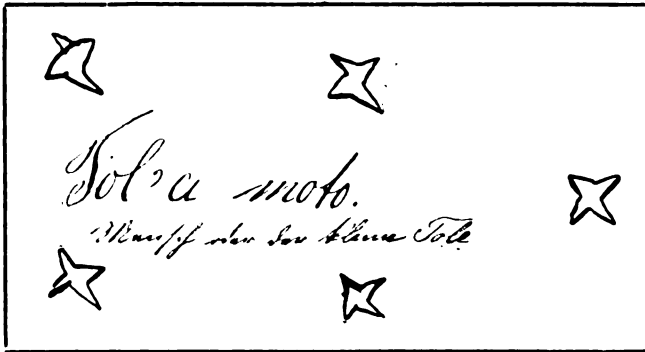 Tol'a moto.
Mensch oder der kleine Tole